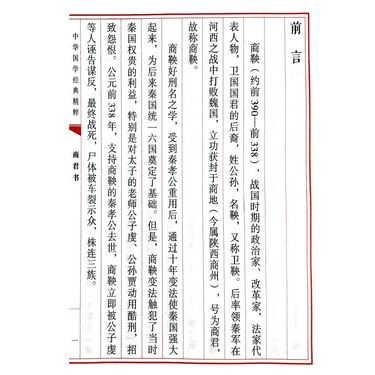 前言
商鞅（约前390—前338），战国时期的政治家、改革家，法家代
表人物，卫国国君的后裔，姓公孙，名鞅，又称卫鞅。后率领秦军在
河西之战中打败魏国，立功获封于商地（今属陕西商州），号为商君，
故称商鞅。
商鞅好刑名之学，受到秦孝公重用后，通过十年变法使秦国强大
起来，为后来秦国统一六国奠定了基础。但是，商鞅变法触犯了当时
秦国权贵的利益，特别是对太子的老师公子虔、公孙贾动用酷刑，招
致怨恨。公元前338年，支持商鞅的秦孝公去世，商鞅立即被公子虔
等人诬告谋反，最终战死，尸体被车裂示众，株连三族。
中华国学经典精粹
商君书